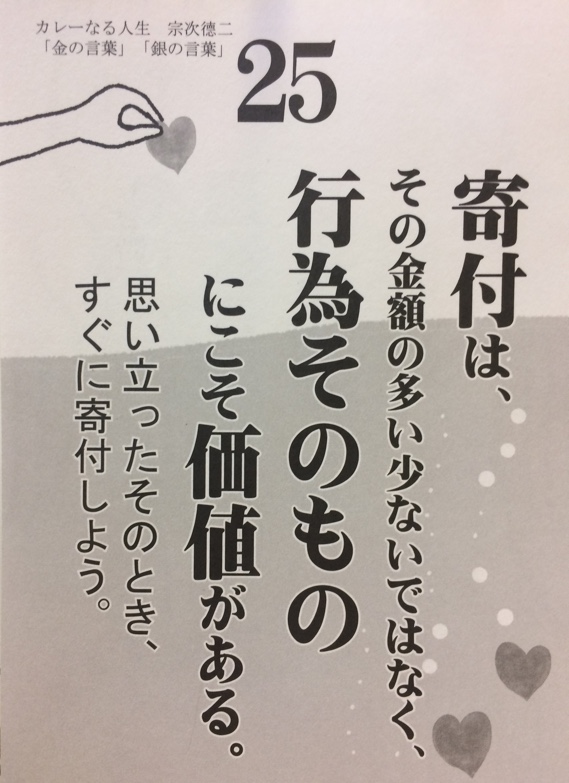 カレーなる人生　宗次徳二
「金の言葉」「銀の言葉」
25
寄付は、
その金額の多い少ないではなく、
行為そのもの
にこそ価値がある。
思い立ったそのとき、
すぐに寄付しよう。